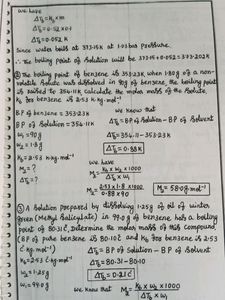 we have
ΔTb = Kb × m
ΔTb = 0.52 × 0.1
ΔTb = 0.052 K
Since water boils at 373.15 K at 1.013 bar pressure.
∴ the boiling point of solution will be 373.15 + 0.052 = 373.202 K
② The boiling point of benzene is 353.23 K when 1.80 g of a non-
volatile solute was dissolved in 90 g of benzene, the boiling point
is raised to 354.11 K calculate the molar mass of the solute.
Kb for benzene is 2.53 K kg mol⁻¹
BP of benzene = 353.23 K
we know that
BP of solution = 354.11 K
ΔTb = BP of solution - BP of solvent
W₁ = 90 g
ΔTb = 354.11 - 353.23 K
W₂ = 1.8 g
ΔTb = 0.88 K
Kb = 2.53 K kg mol⁻¹
we have
M₂ = ?
M₂ = Kb × W₂ × 1000
ΔTb × W₁
ΔTb = ?
M₂ = 2.53 × 1.8 × 1000
0.88 × 90
M₂ = 58.0 g mol⁻¹
③ A solution prepared by dissolving 1.25 g of oil of winter
green (Methyl Salicylate) in 99.0 g of benzene has a boiling
point of 80.31 C. determine the molar mass of this compound.
(BP of pure benzene is 80.10 C and Kb for benzene is 2.53
C kg mol⁻¹)
ΔTb = BP of solution - BP of Solvent
Kb = 2.53 C kg mol⁻¹
ΔTb = 80.31 - 80.10
W₂ = 1.25 g
ΔTb = 0.21 C
W₁ = 99.0 g
we know that M₂ = Kb × W₂ × 1000
ΔTb × W₁